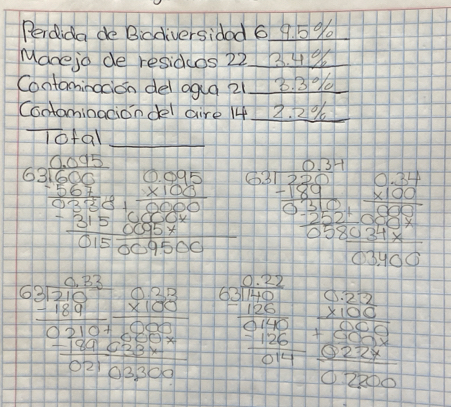 Perdida de Biodiversidad 6 9.5%
Manejo de residuos 22 3.4%
Contaminación del agua 21 3.3%
Contaminación del aire 14 2.2%
Total
0.095
63 600 0.095
-567 x100
0338 + 0000
-315 0000x
015 0095x
009500
0.34
63 220 0.34
-189 x100
0310 000
-252 + 000x
058 034x
03400
0.33
63 210 0.33
-189 x100
0210 + 000
-189 000x
021 033x
03300
0.22
63 140 0.22
-126 x100
0140 + 000
-126 000x
014 022x
02200